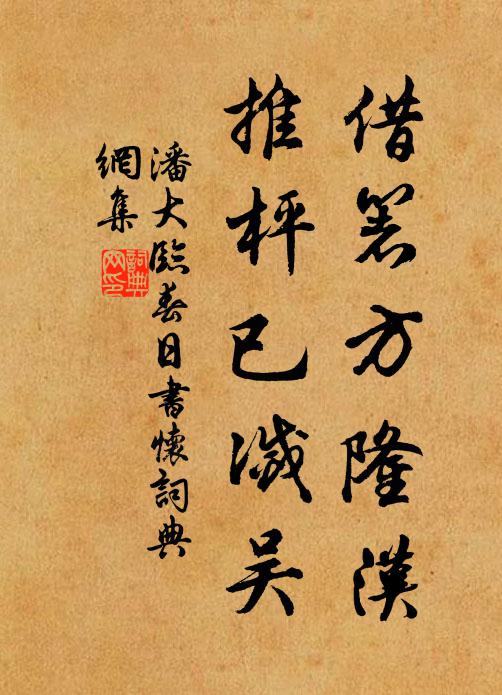 借箸方隆漢
推枰已滅吴
潘大臨春日書懷詞典
網集
詞典
网印